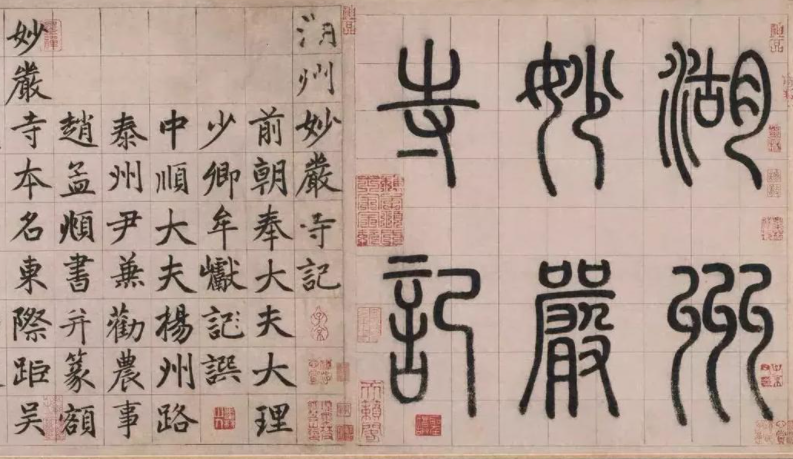 湖州
妙嚴
寺記
湖州妙嚴寺記
前朝奉大夫大理
少卿牟巘記譔
中順大夫楊州路
泰州尹兼勸農事
趙孟頫書并篆額
妙嚴寺本名東際距吳